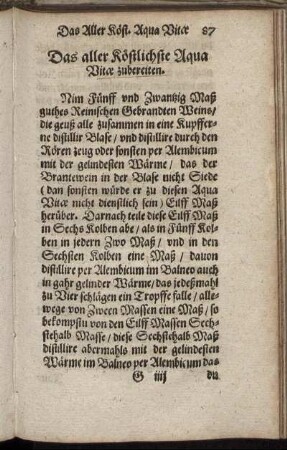 Das Aller Köst. Aqua Vitæ 87
Das aller Köstlichste Aqua
Vitæ zubereiten.
Nim Fünff vnd Zwantzig Maß
guthes Reinischen Gebrandten Weins/
die geuß alle zusammen in eine Kupffer-
ne distillir Blase/ vnd distillire durch den
Rören zeug oder sonsten per Alembicum
mit der gelindesten Wärme/ das der
Brantewein in der Blase nicht Siede
(dan sonsten würde er zu diesen Aqua
Vitæ nicht dienstlich sein) Eilff Maß
herüber. Darnach teile diese Eilff Maß
in Sechs Kolben abe/ als in Fünff Kol-
ben in jedern Zwo Maß/ vnd in den
Sechsten Kolben eine Maß/ davon
distillire per Alembicum im Balneo auch
in gahr gelinder Wärme/ das jedeßmahl
zu Vier schlägen ein Tropffe falle/ alle-
wege von Zween Massen eine Maß/ so
bekompstu von den Eilff Massen Sech-
stehalb Masse/ diese Sechstehalb Maß
distillire abermahls mit der gelindesten
Wärme im Balneo per Alembicum das
G iiij du